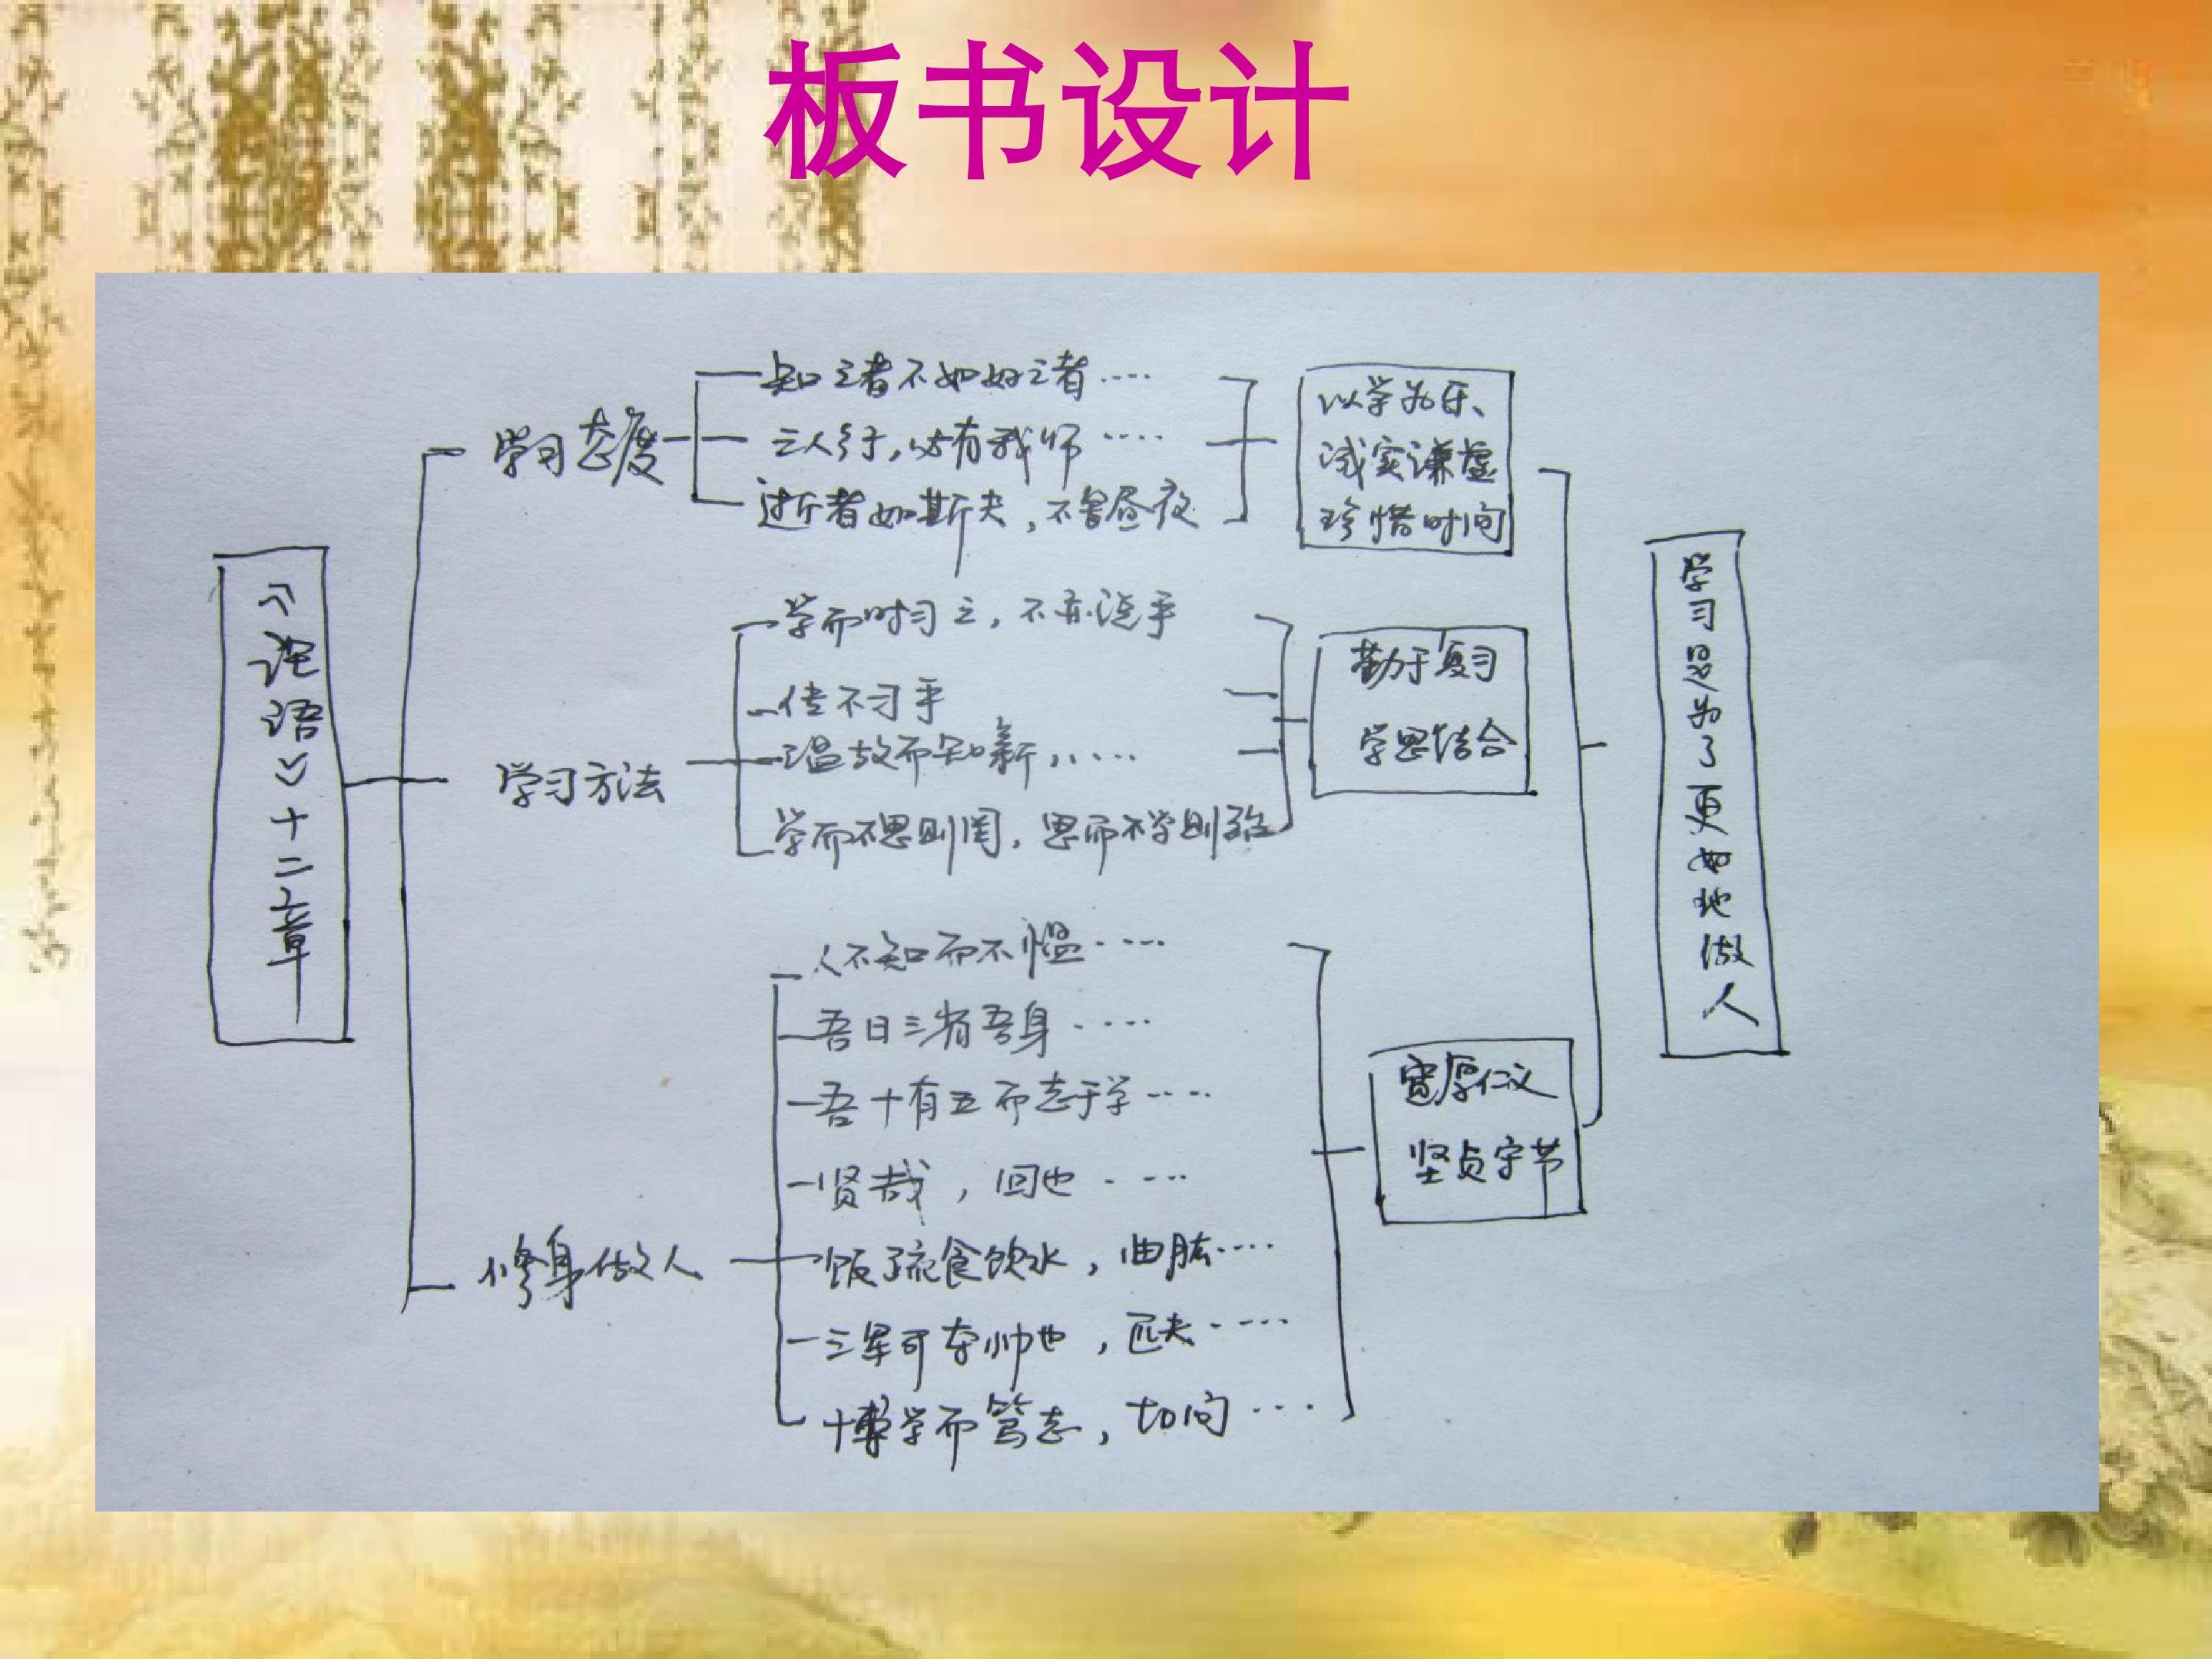 板书设计
《论语》十二章
学习态度
知之者不如好之者····
三人行,必有我师····
逝者如斯夫,不舍昼夜
以学为乐、
诚实谦虚
珍惜时间
学习方法
学而时习之,不亦说乎
传不习乎
温故而知新,····
学而不思则罔,思而不学则殆
勤于复习
学思结合
修身做人
人不知而不愠····
吾日三省吾身····
吾十有五而志于学····
贤哉,回也····
饭疏食饮水,曲肱····
三军可夺帅也,匹夫····
博学而笃志,切问···
宽厚仁义
坚贞守节
学习是为了更好地做人